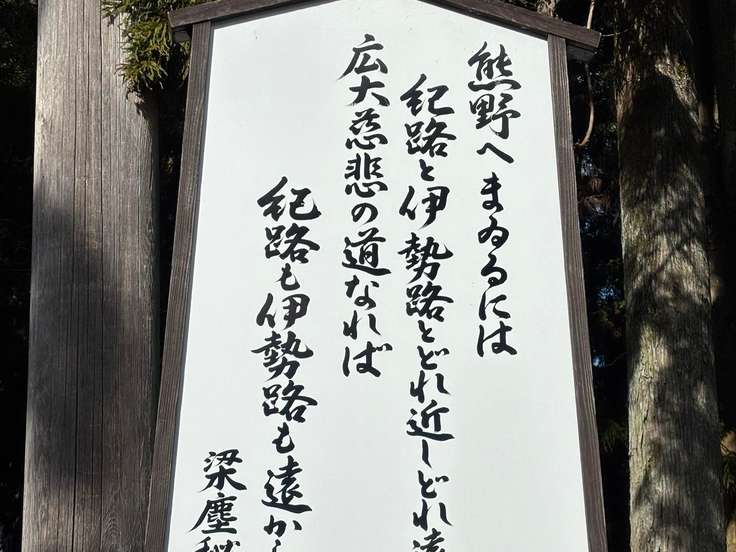 熊野へまゐるには
紀路と伊勢路とどれ近しどれ遠
広大慈悲の道なれば
紀路も伊勢路も遠から
梁塵秘